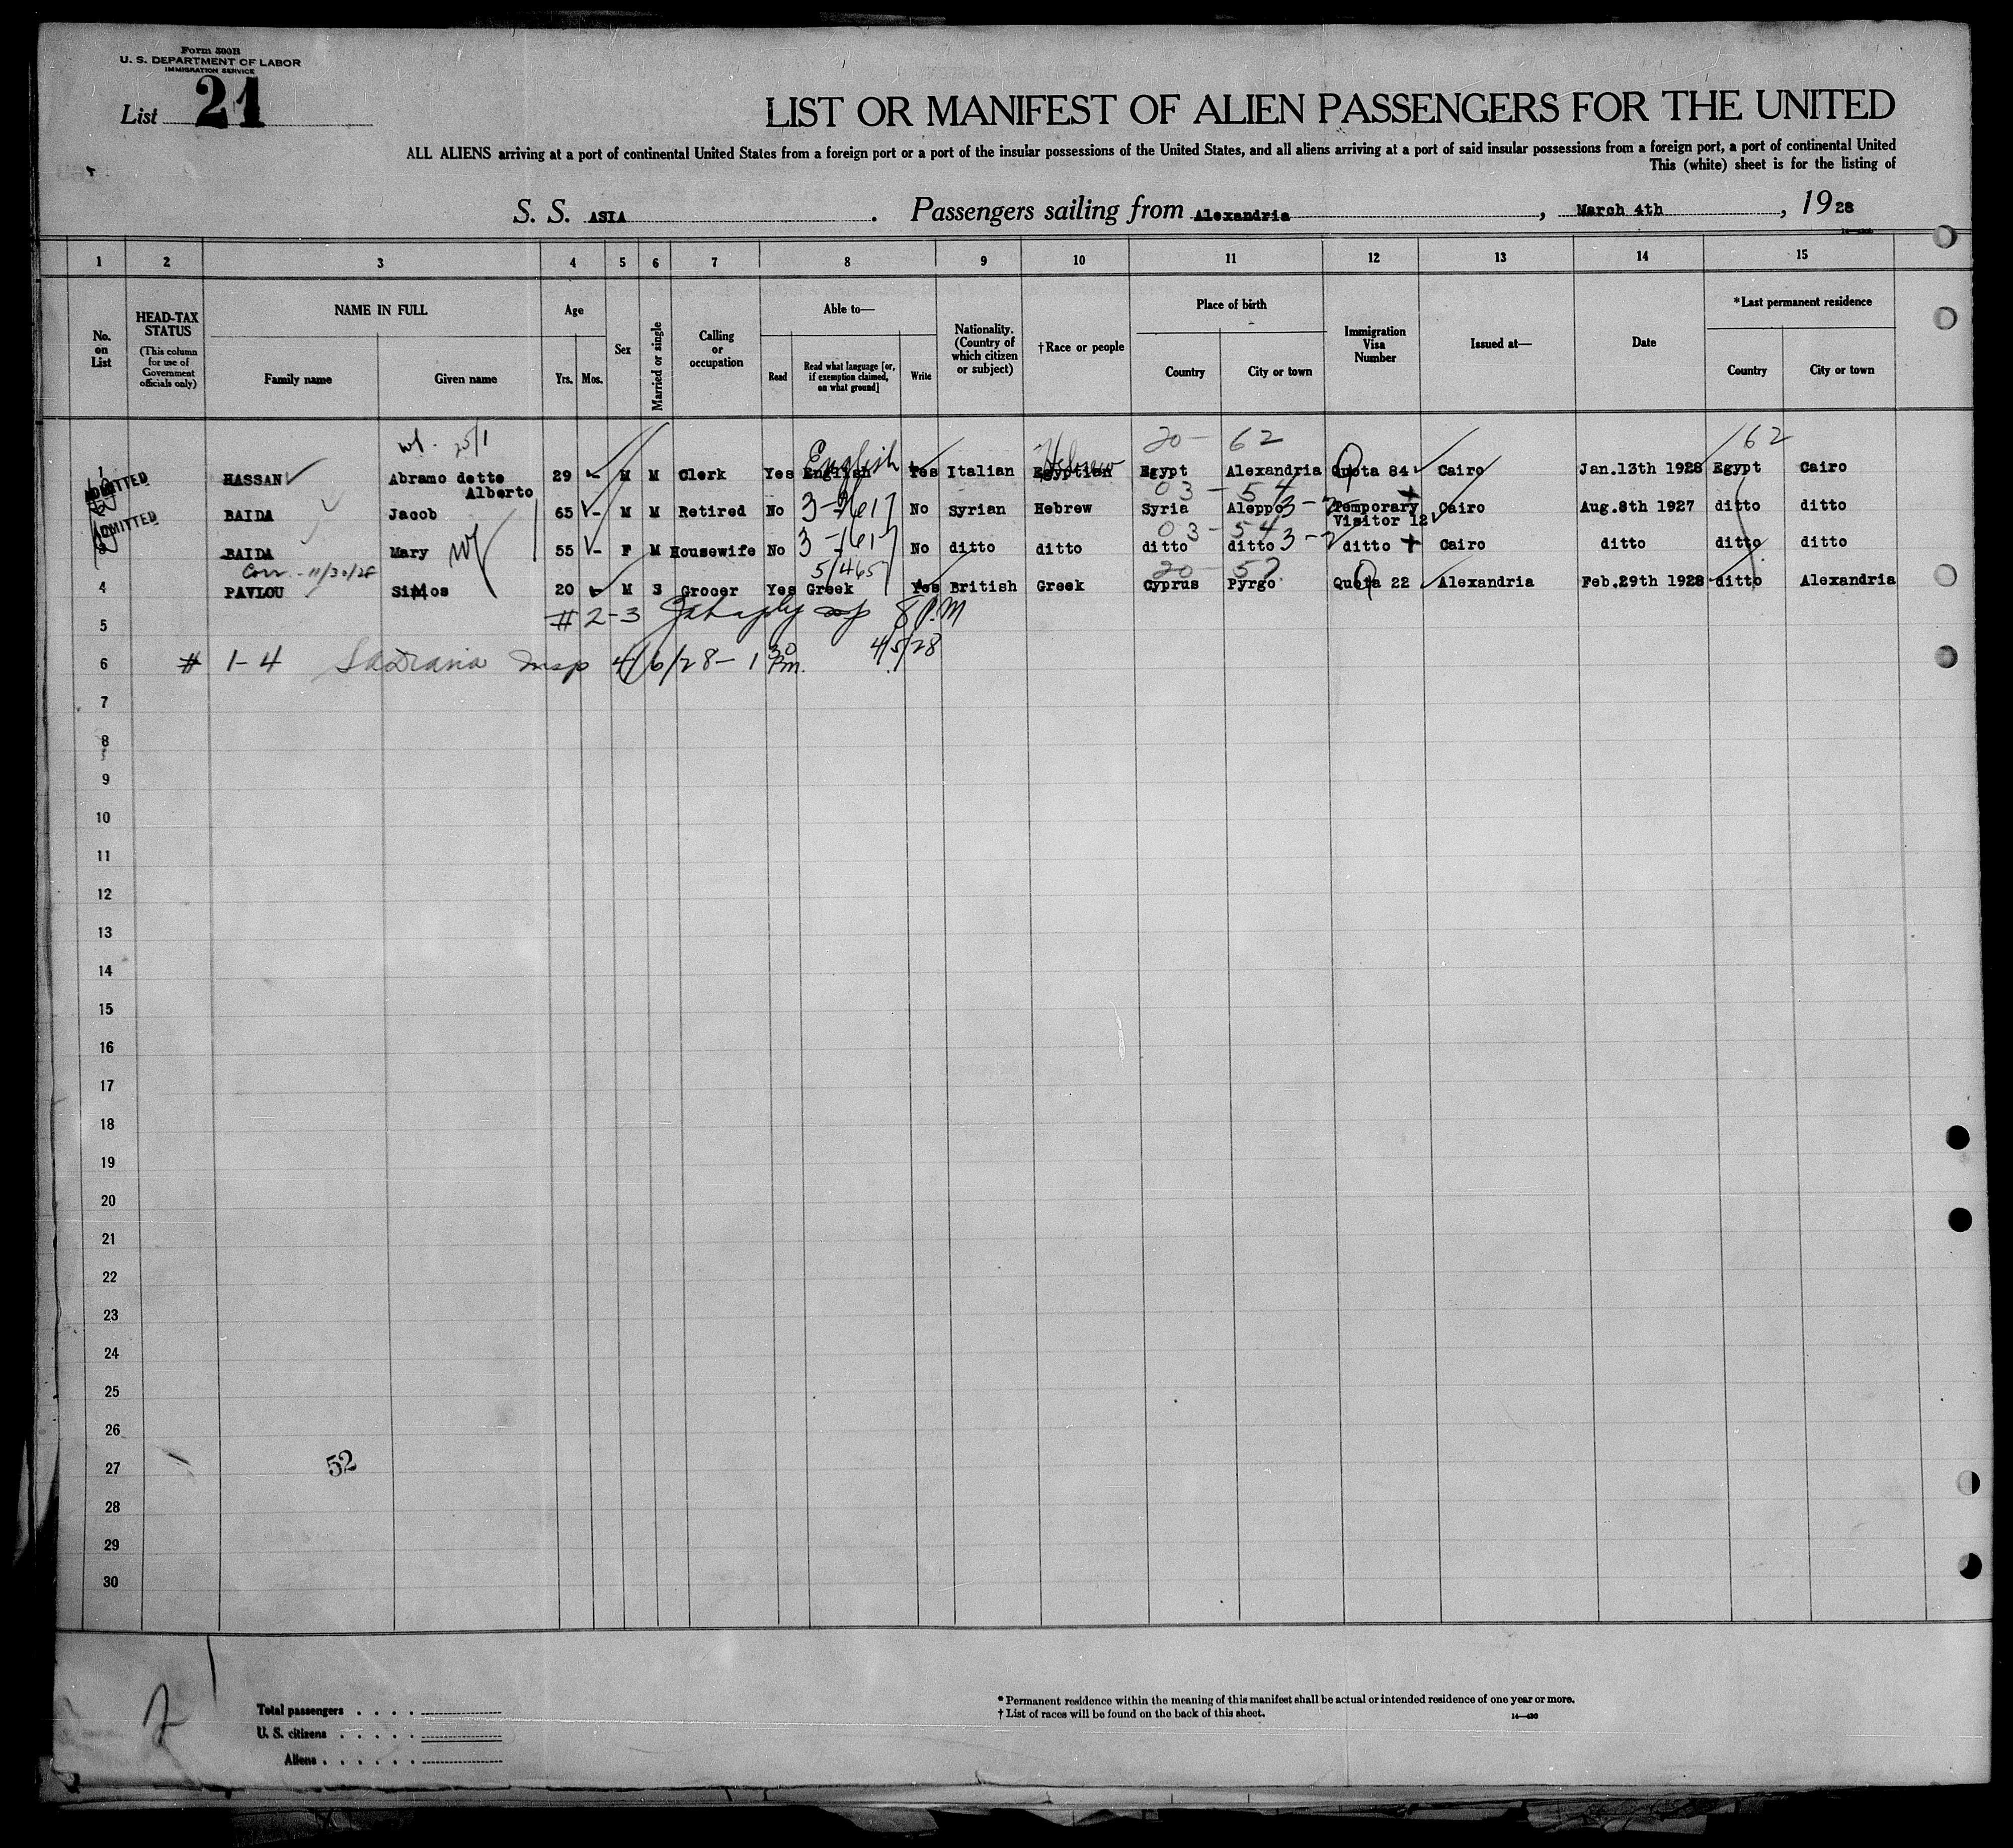 Form 500B
U. S. DEPARTMENT OF LABOR
IMMIGRATION SERVICE
List 21
LIST OR MANIFEST OF ALIEN PASSENGERS FOR THE UNITED
ALL ALIENS arriving at a port of continental United States from a foreign port or a port of the insular possessions of the United States, and all aliens arriving at a port of said insular possessions from a foreign port, a port of continental United
This (white) sheet is for the listing of
S. S. ASIA . Passengers sailing from Alexandria , March 4th , 1928
1 2 3 4 5 6 7 8 9 10 11 12 13 14 15
No. on List
HEAD-TAX STATUS (This column for use of Government officials only)
NAME IN FULL
Family name Given name
Age
Yrs. Mos.
Sex
Married or single
Calling or occupation
Able to—
Read Read what language [or, if exemption claimed, on what ground] Write
Nationality. (Country of which citizen or subject)
†Race or people
Place of birth
Country City or town
Immigration Visa Number
Issued at—
Date
*Last permanent residence
Country City or town
25/1 English Hebrew 20- 62 162
1 ADMITTED HASSAN Abramo dette Alberto 29 - M M Clerk Yes English Yes Italian Egyptian Egypt Alexandria Quota 84 Cairo Jan.13th 1928 Egypt Cairo
03-54
2 ADMITTED BAIDA Jacob 65 - M M Retired No 3-/617 No Syrian Hebrew Syria Aleppo Temporary Visitor 12 Cairo Aug.8th 1927 ditto ditto
03-54
3 BAIDA Mary 55 - F M Housewife No 3-/617 No ditto ditto ditto ditto ditto Cairo ditto ditto ditto
Corr. - 11/30/28 5/4657 20- 57
4 PAVLOU Simos 20 M S Grocer Yes Greek Yes British Greek Cyprus Pyrgo Quota 22 Alexandria Feb.29th 1928 ditto Alexandria
5 # 2-3 8 P.M
4/5/28
6 # 1-4 Insp 4/6/28-1 30 Pm.
7
8
9
10
11
12
13
14
15
16
17
18
19
20
21
22
23
24
25
26
27 52
28
29
30
Total passengers
U. S. citizens
Aliens
* Permanent residence within the meaning of this manifest shall be actual or intended residence of one year or more.
† List of races will be found on the back of this sheet.
14—430